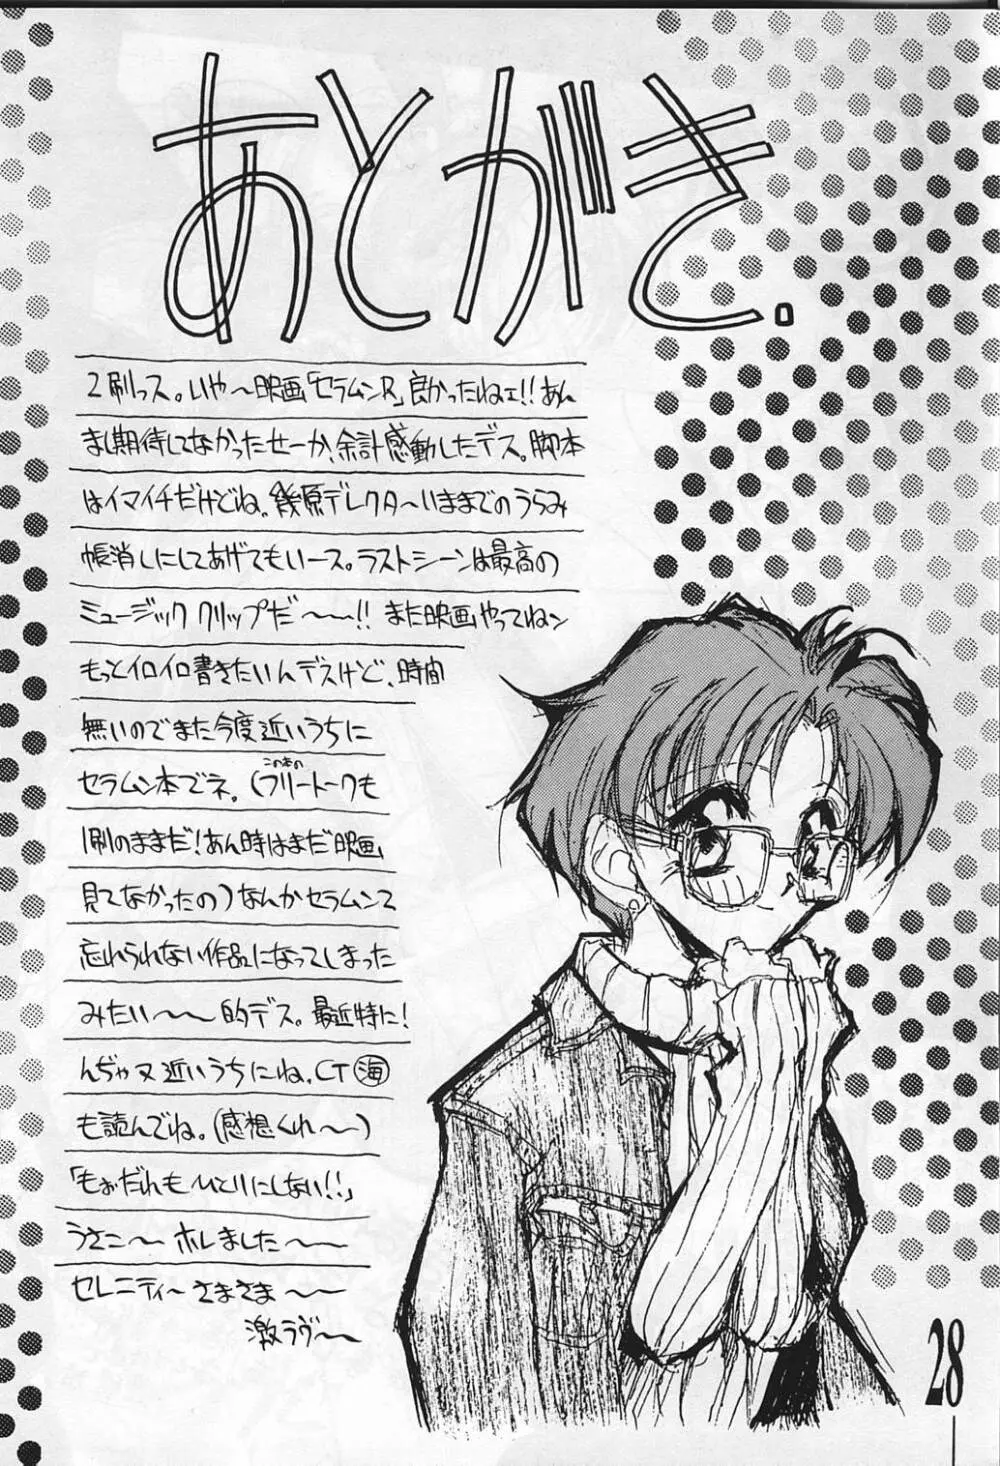 あとがき。
2刷っス。いや〜映画「セラムンR」良かったねェ!!あん
まし期待してなかったせーか、余計感動したデス。脚本
はイマイチだけどね。幾原デレクタ〜いままでのうらみ
帳消しにしてあげてもいース。ラストシーンは最高の
ミュージッククリップだ〜〜!!また映画やってねン
もっとイロイロ書きたいんデスけど、時間
無いのでまた今度近いうちに
セラムン本でネ。(フリートークも
この本の
1刷のままだ!あん時はまだ映画
見てなかったの)なんかセラムンて
忘れられない作品になってしまった
みたい〜〜的デス。最近特に!
んぢゃヌ近いうちにね。CT海
も読んでね。(感想くれ〜〜)
「もぉだれもひとりにしない!!」
うさこ〜ホレました〜〜
セレニティ〜さまさま〜〜
激ラヴ〜
28